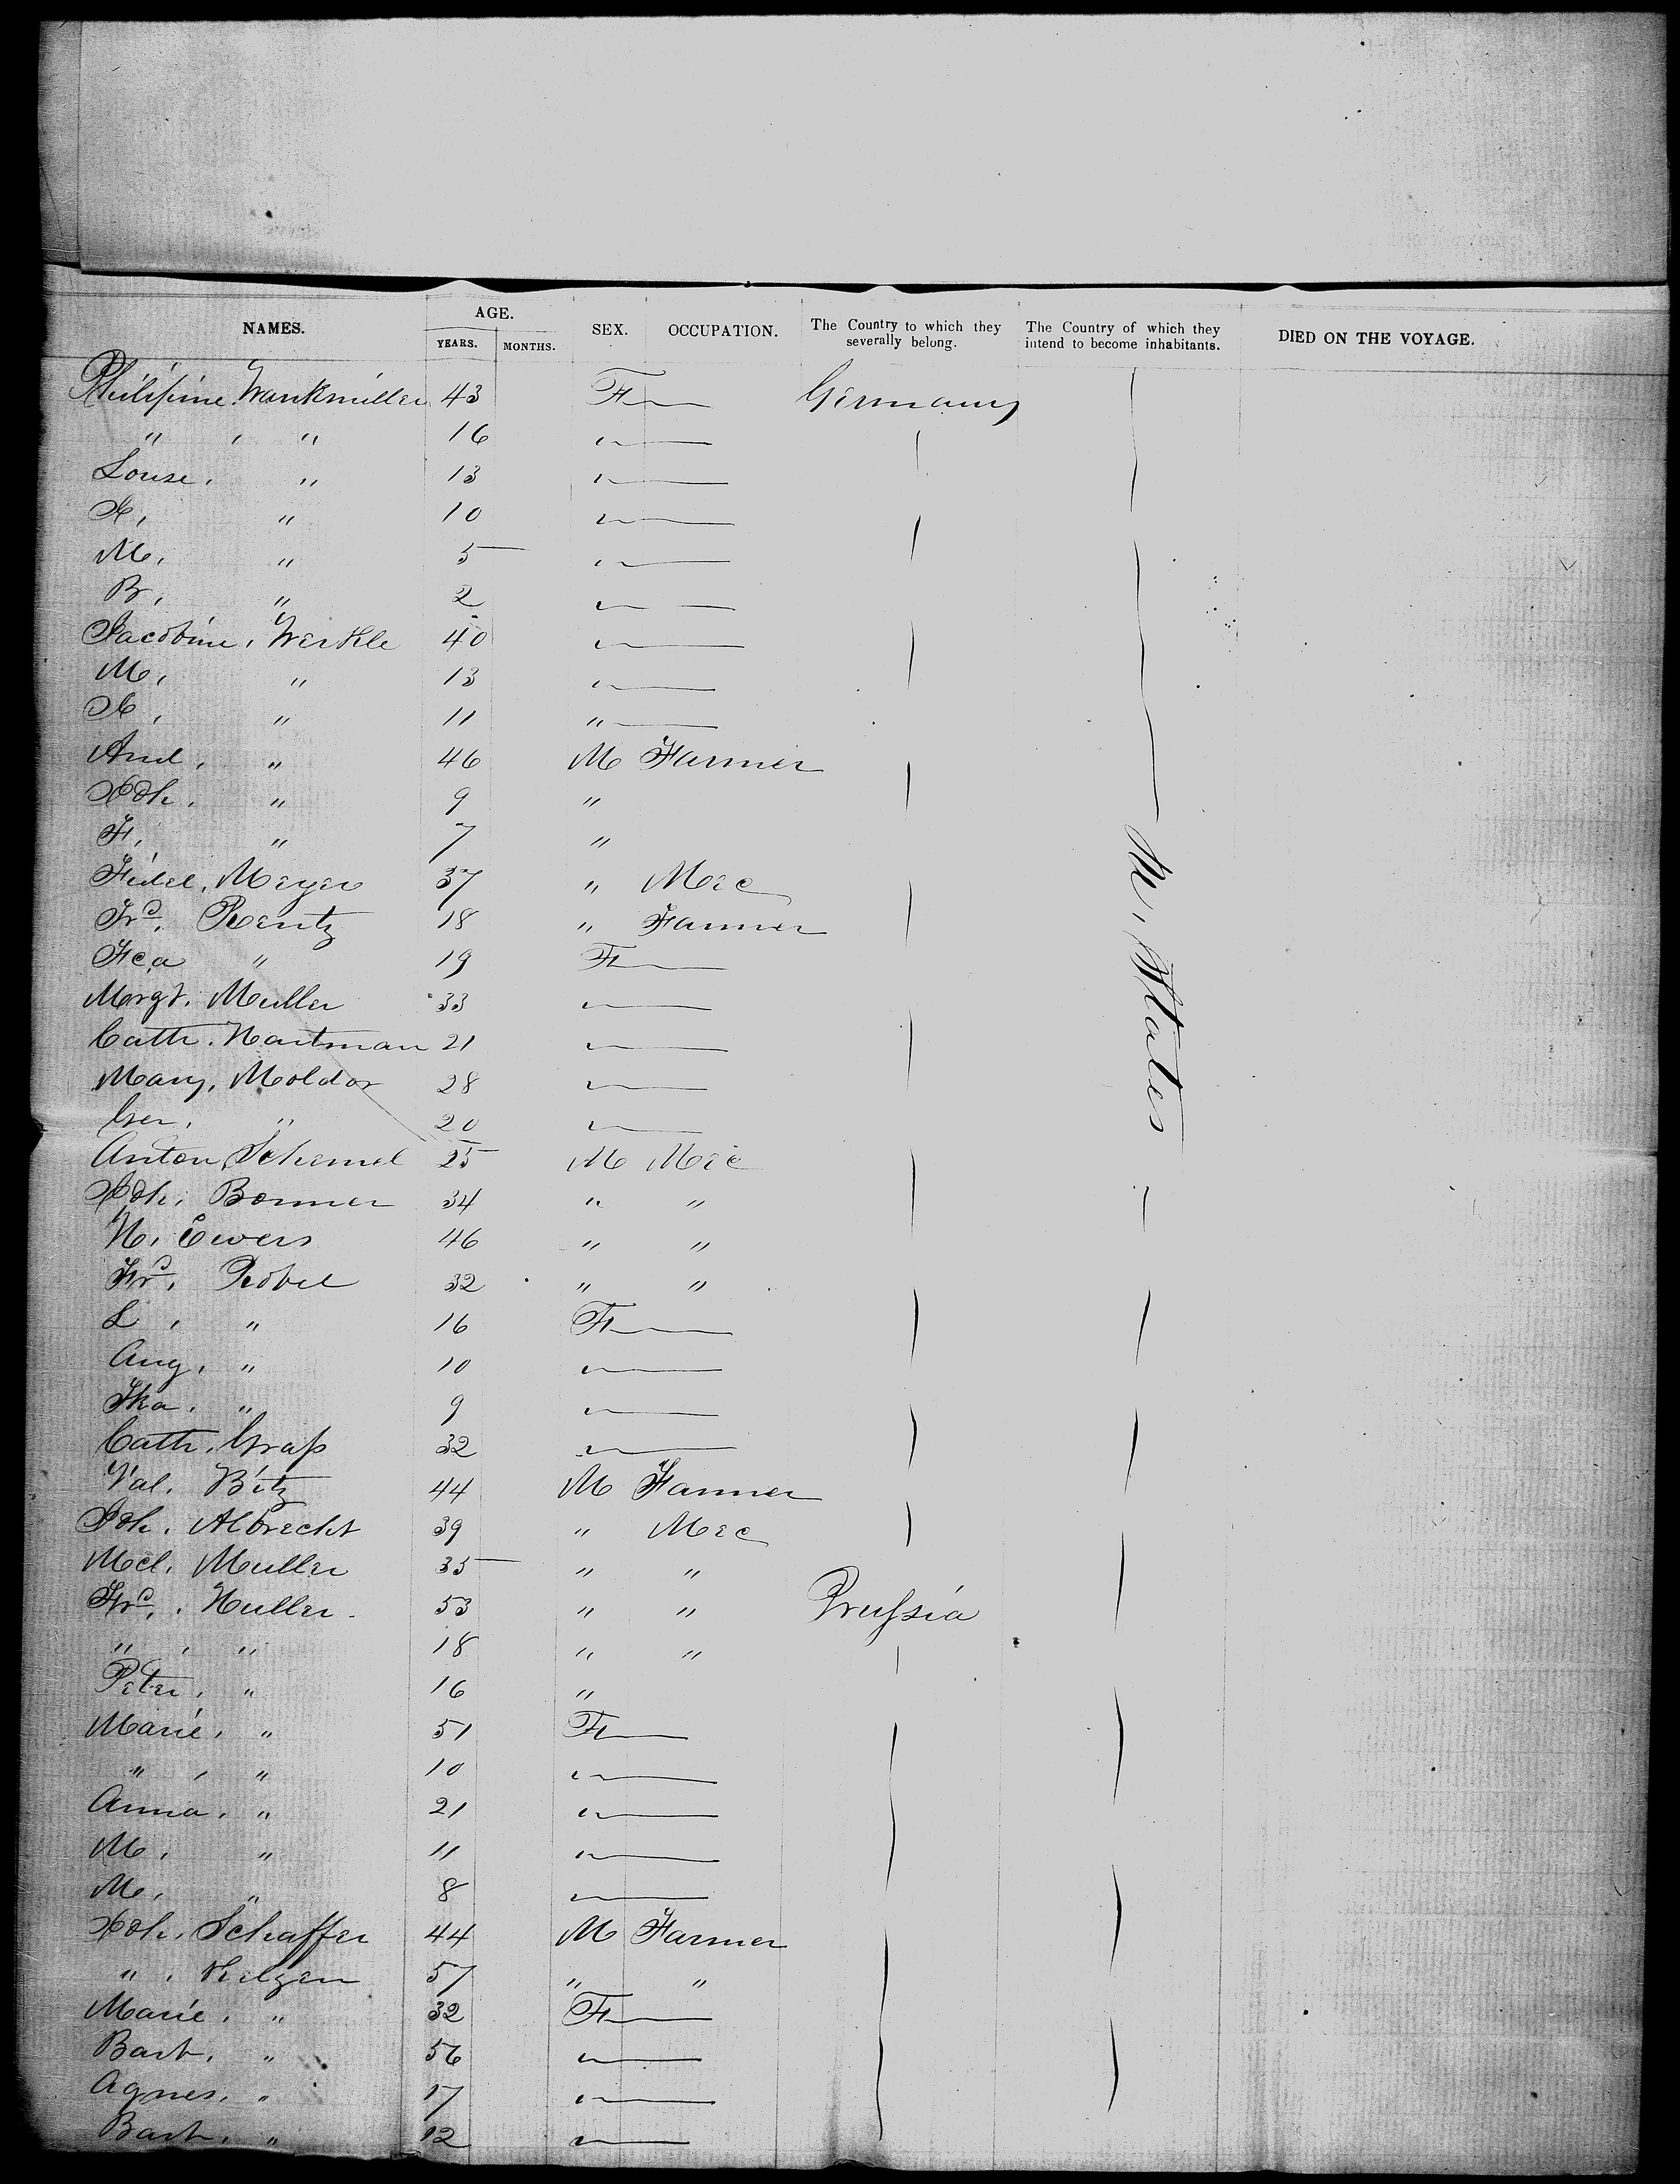 NAMES. AGE. YEARS. MONTHS. SEX. OCCUPATION. The Country to which they severally belong. The Country of which they intend to become inhabitants. DIED ON THE VOYAGE.
Philipine Wankmuller 43 F — Germany
" , " 16 " —
Louse, " 13 " —
" 10 " —
M, " 5 " —
B, " 2 " —
Jacobine, Werkle 40 " —
M, " 13 " —
" 11 " —
And, " 46 M Farmer
Joh, " 9 "
F, " 7 "
Fidel, Meyer 37 " Mec
Frd, Rentz 18 " Farmer
Fca " 19 F —
Margt, Muller 33 " —
Cath. Hartman 21 " —
Mary, Moldor 28 " —
Ger, " 20 " —
Anton, Schemel 25 M Mec
Joh, Bonner 34 " "
H, Ewers 46 " "
Frd, Robel 32 " "
L, " 16 F —
Aug, " 10 " —
Fka, " 9 " —
Cath, Graß 32 " —
Val, Bitz 44 M Farmer
Joh, Albrecht 39 " Mec
Mcl, Muller 35 " "
Frd, Huller 53 " " Prußia
" , " 18 " "
Peter, " 16 "
Marie, " 51 F —
" , " 10 " —
Anna, " 21 " —
M, " 11 " —
M, " 8 " —
Joh, Schaffer 44 M Farmer
" , Hilgen 57 " "
Marie, " 32 F —
Barb, " 56 " —
Agnes, " 17 " —
Barb, " 12 " —
Un, States